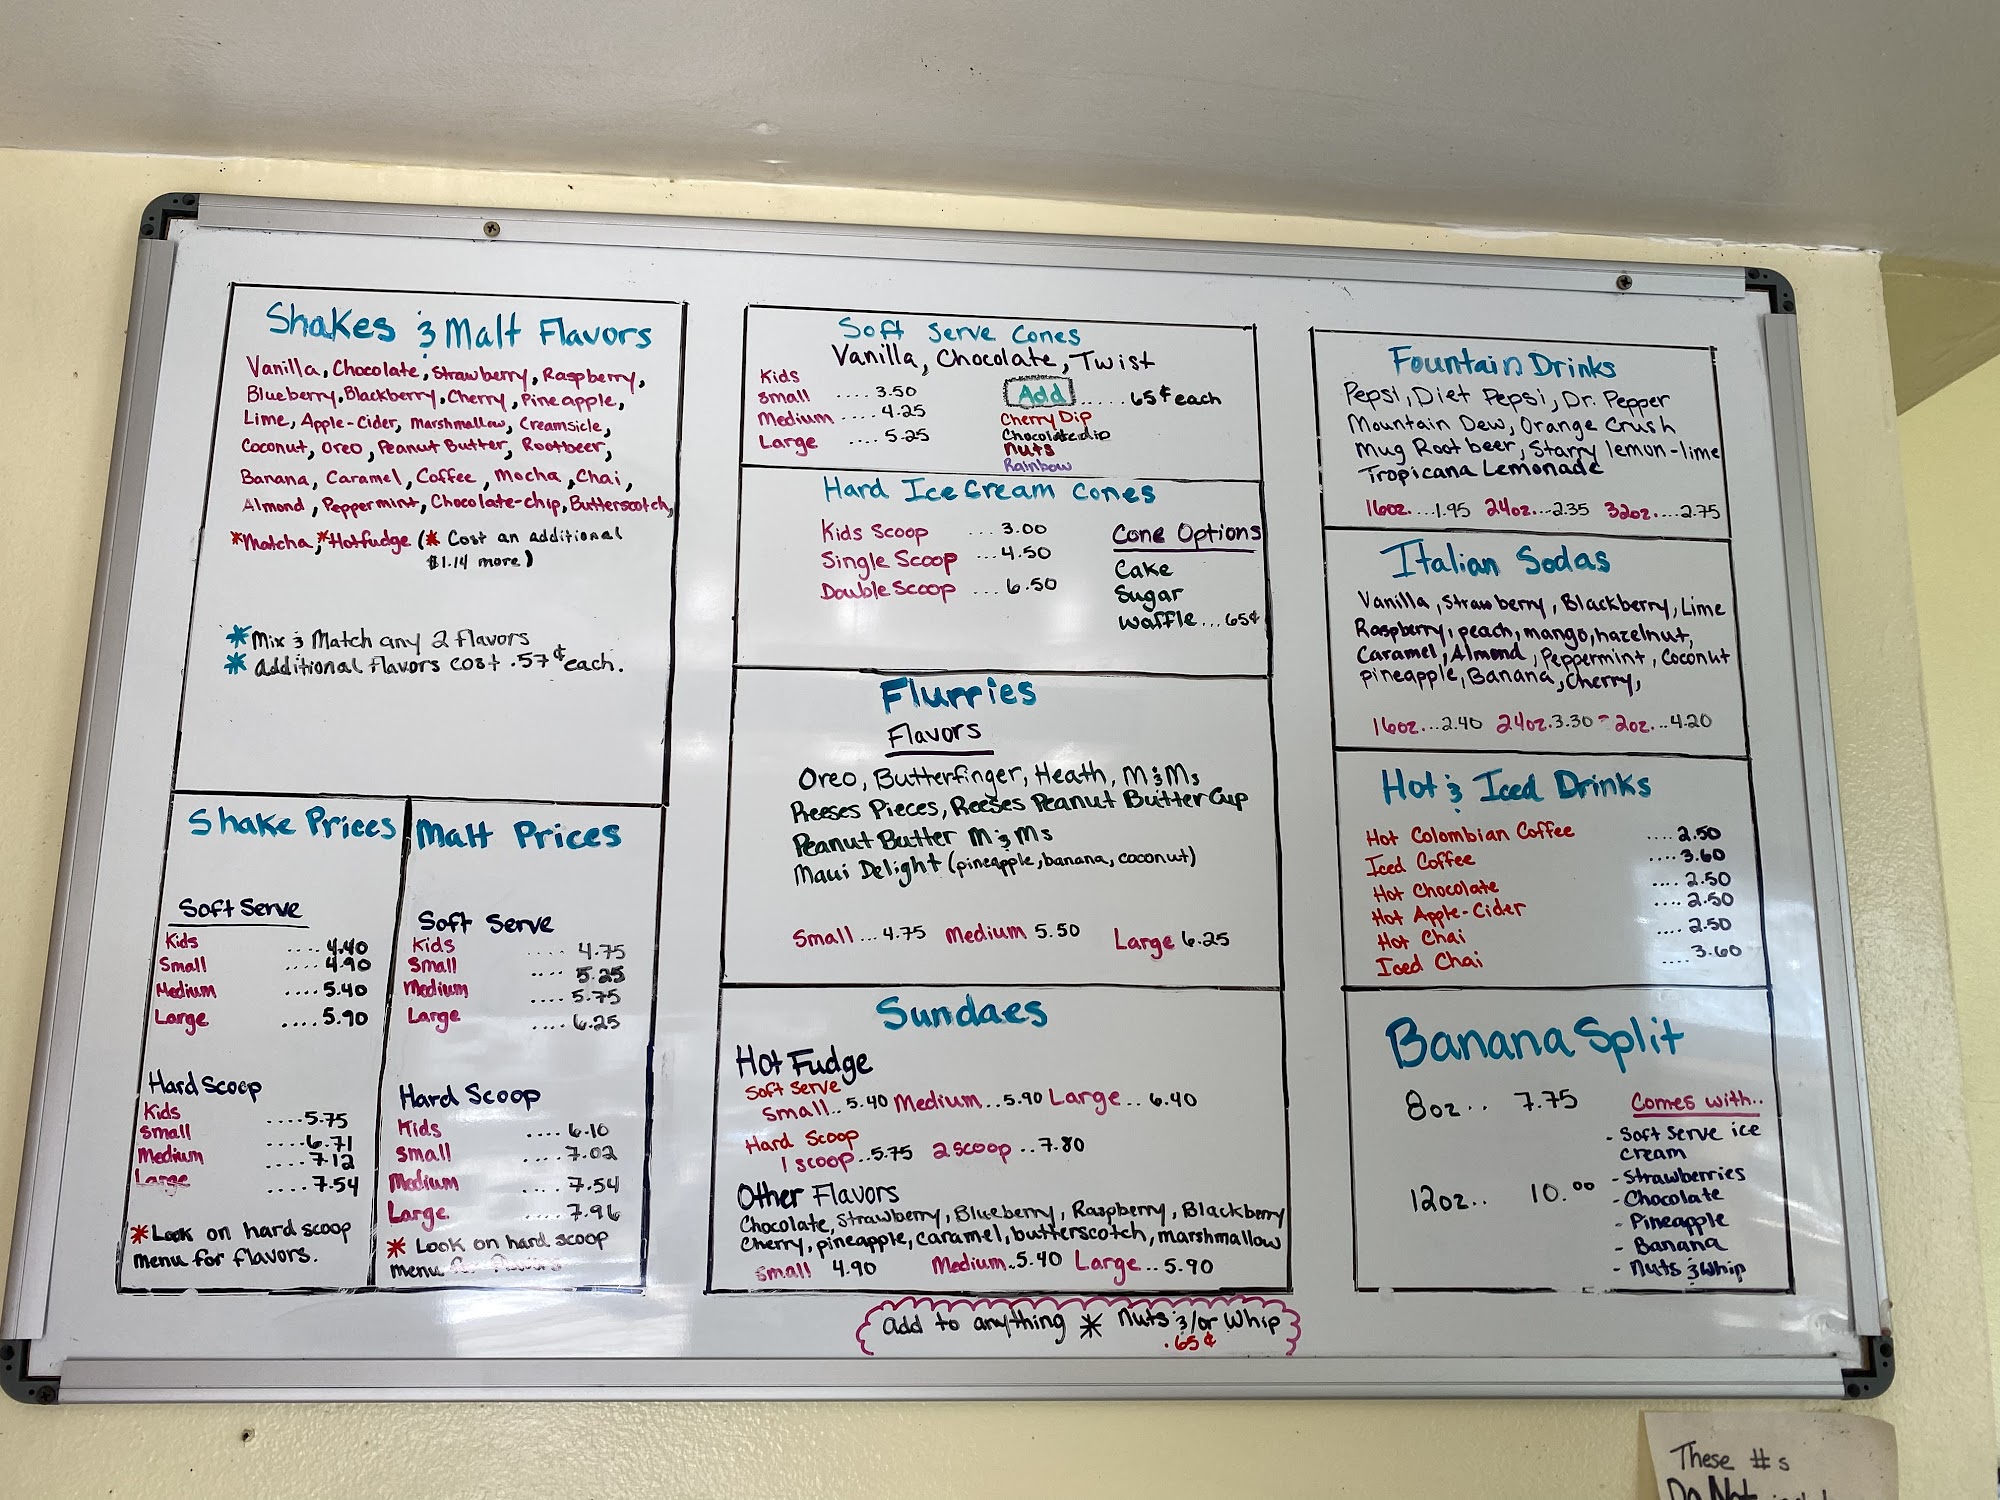 Shakes & Malt Flavors
Vanilla, Chocolate, Strawberry, Raspberry,
Blueberry, Blackberry, Cherry, Pineapple,
Lime, Apple-Cider, Marshmallow, Creamsicle,
Coconut, Oreo, Peanut Butter, Rootbeer,
Banana, Caramel, Coffee, Mocha, Chai,
Almond, Peppermint, Chocolate-chip, Butterscotch,
*Matcha, *Hotfudge (* Cost an additional
$1.14 more)
*Mix & Match any 2 flavors
* additional flavors cost .57¢ each.
Shake Prices
Soft Serve
Kids .... 4.40
Small .... 4.90
Medium .... 5.40
Large .... 5.90
Hard Scoop
Kids .... 5.75
Small .... 6.71
Medium .... 7.12
Large .... 7.54
*Look on hard scoop
menu for flavors.
Malt Prices
Soft Serve
Kids .... 4.75
Small .... 5.25
Medium .... 5.75
Large .... 6.25
Hard Scoop
Kids .... 6.10
Small .... 7.02
Medium .... 7.54
Large .... 7.96
* Look on hard scoop
menu for flavors
Soft Serve Cones
Vanilla, Chocolate, Twist
Kids
Small .... 3.50
Medium .... 4.25
Large .... 5.25
Add ..... 65¢ each
Cherry Dip
Chocolate dip
Nuts
Rainbow
Hard Ice Cream Cones
Kids Scoop ... 3.00
Single Scoop ... 4.50
Double Scoop ... 6.50
Cone Options
Cake
Sugar
Waffle... 65¢
Flurries
Flavors
Oreo, Butterfinger, Heath, M&Ms
Reeses Pieces, Reeses Peanut Butter Cup
Peanut Butter M&Ms
Maui Delight (pineapple, banana, coconut)
Small ... 4.75 Medium 5.50 Large 6.25
Sundaes
Hot Fudge
Soft Serve
Small.. 5.40 Medium... 5.90 Large.. 6.40
Hard Scoop
1 scoop..5.75 2 scoop ..7.80
Other Flavors
Chocolate, Strawberry, Blueberry, Raspberry, Blackberry
Cherry, pineapple, caramel, butterscotch, marshmallow
Small 4.90 Medium..5.40 Large...5.90
add to anything * nuts &/or Whip
.65¢
Fountain Drinks
Pepsi, Diet Pepsi, Dr. Pepper
Mountain Dew, Orange Crush
Mug Root beer, Starry lemon-lime
Tropicana Lemonade
16oz....1.95 24oz...2.35 32oz....2.75
Italian Sodas
Vanilla, Strawberry, Blackberry, Lime
Raspberry, peach, mango, hazelnut,
Caramel, Almond, Peppermint, Coconut
pineapple, Banana, Cherry,
16oz...2.40 24oz.3.30 2oz...4.20
Hot & Iced Drinks
Hot Colombian Coffee .... 2.50
Iced Coffee .... 3.60
Hot Chocolate .... 2.50
Hot Apple-Cider .... 2.50
Hot Chai .... 2.50
Iced Chai .... 3.60
Banana Split
8oz.. 7.75
12oz.. 10.00
Comes with..
- Soft Serve ice
cream
- Strawberries
- Chocolate
- Pineapple
- Banana
- Nuts & Whip
These #s
Do Not